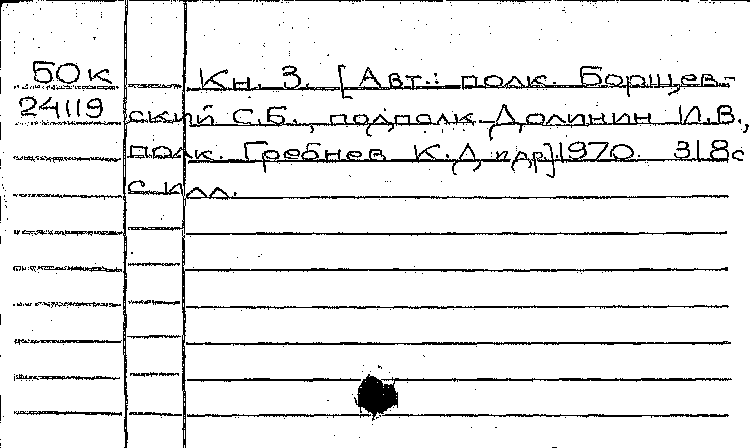 50к Кн. 3. [Авт.: полк. Борщев-
24119 ский С.Б., подполк. Долинин И.В.,
полк. Гребнев К.Д. и др.] 1970. 318с
с илл.